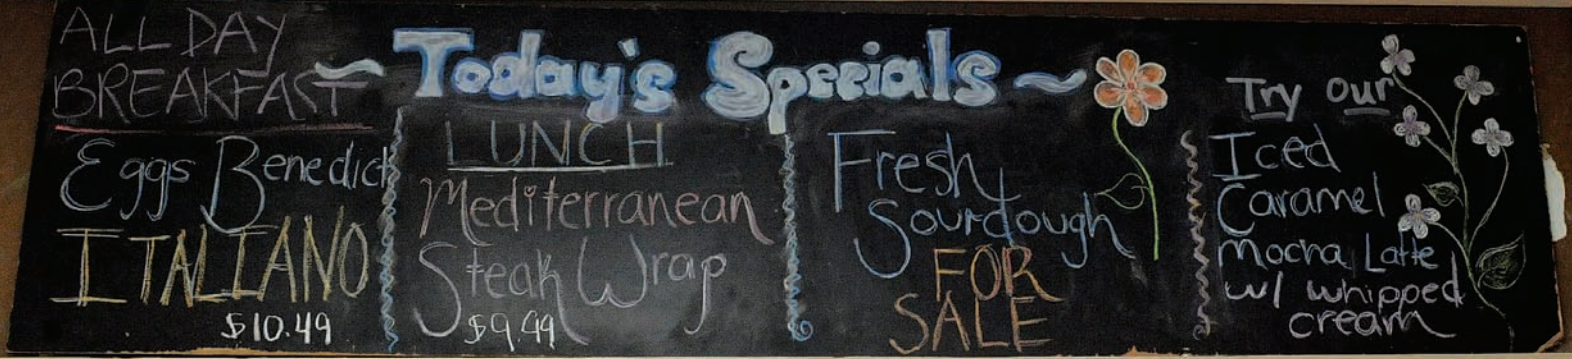 Today's Specials
ALL DAY
BREAKFAST
Eggs Benedict
ITALIANO
$10.49
LUNCH
Mediterranean
Steak Wrap
$9.99
Fresh
Sourdough
FOR
SALE
Try our
Iced
Caramel
Mocha Latte
w/ whipped
cream